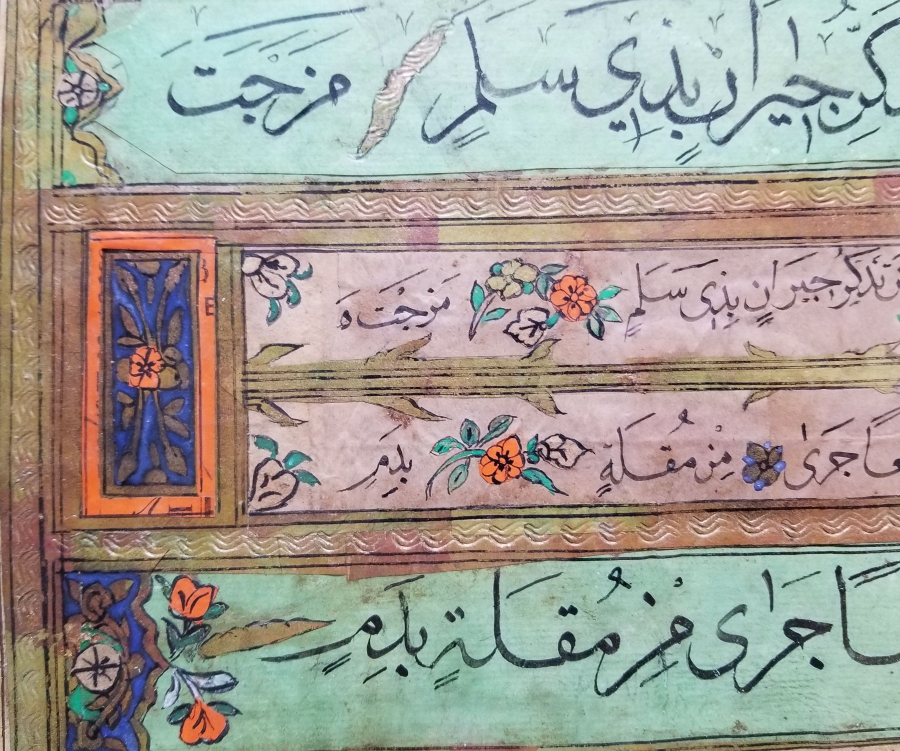 جيرانٍ بذي سلمٍ مزجت
تذكر جيرانٍ بذي سلمٍ مزجت
جرى من مقلةٍ بدمِ
جرى من مقلةٍ بدمِ